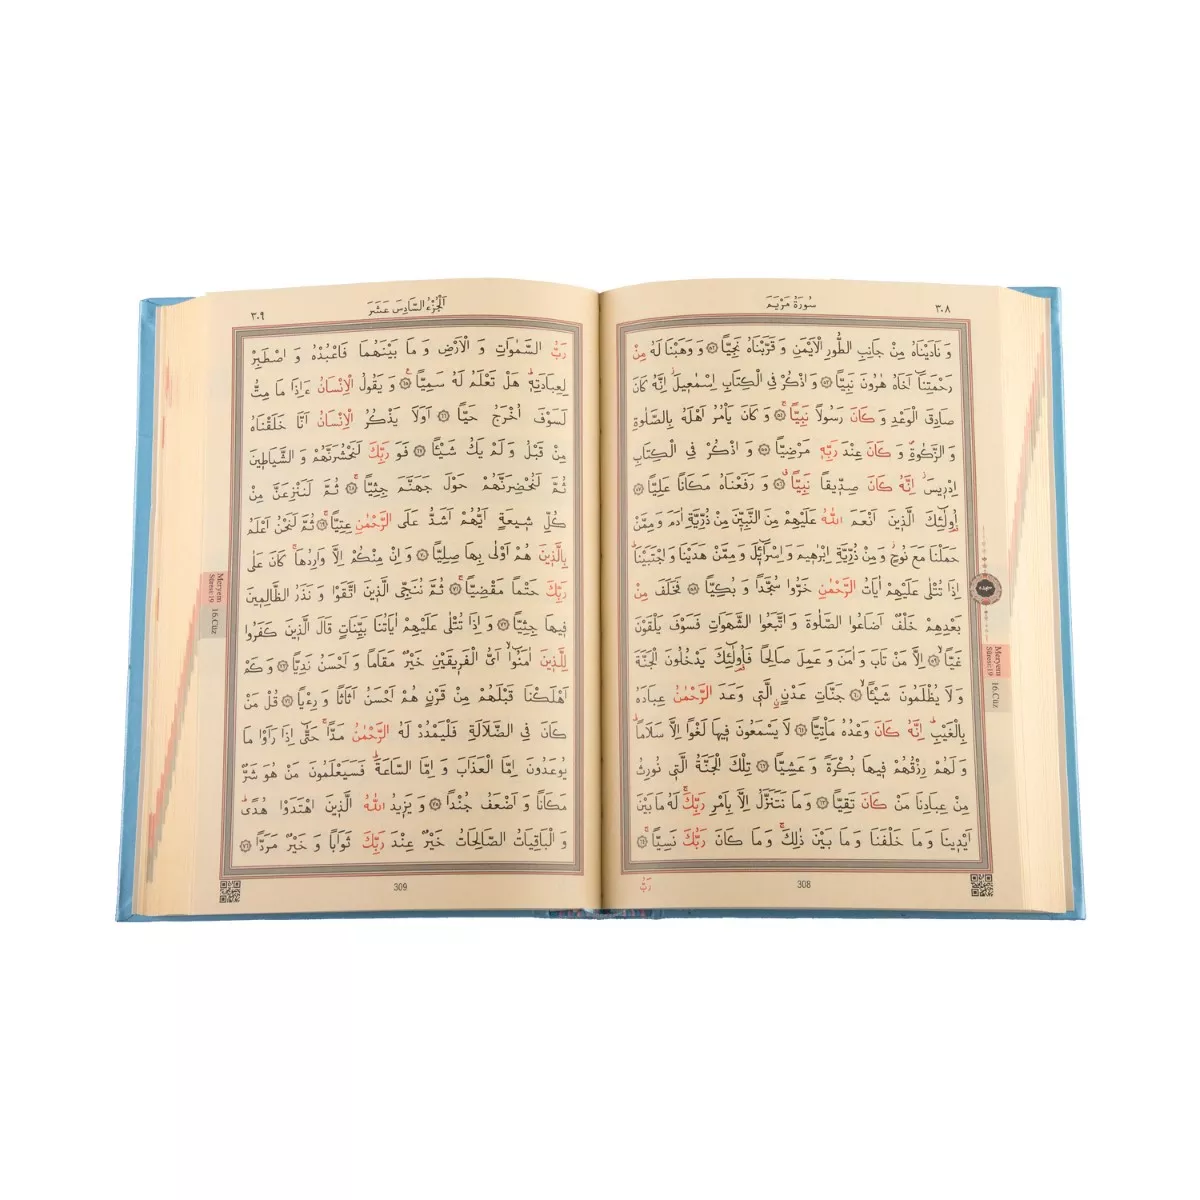 سُورَةُ مَرْيَمَ
٣٠٨
وَ نَادَيْنَاهُ مِنْ جَانِبِ الطُّورِ الْاَيْمَنِ وَ قَرَّبْنَاهُ نَجِيًّا ﴿٥٢﴾ وَ وَهَبْنَا لَهُ مِنْ
رَحْمَتِنَٓا اَخَاهُ هٰرُونَ نَبِيًّا ﴿٥٣﴾ وَ اذْكُرْ فِي الْكِتَابِ اِسْمٰعِيلَ اِنَّهُ كَانَ
صَادِقَ الْوَعْدِ وَ كَانَ رَسُولًا نَبِيًّا ﴿٥٤﴾ وَ كَانَ يَأْمُرُ اَهْلَهُ بِالصَّلٰوةِ
وَ الزَّكٰوةِ وَ كَانَ عِنْدَ رَبِّهِ مَرْضِيًّا ﴿٥٥﴾ وَ اذْكُرْ فِي الْكِتَابِ
اِدْرِيسَ اِنَّهُ كَانَ صِدِّيقًا نَبِيًّا ﴿٥٦﴾ وَ رَفَعْنَاهُ مَكَانًا عَلِيًّا ﴿٥٧﴾
اُولٰٓئِكَ الَّذِينَ اَنْعَمَ اللّٰهُ عَلَيْهِمْ مِنَ النَّبِيّٖنَ مِنْ ذُرِّيَّةِ اٰدَمَ وَ مِمَّنْ
حَمَلْنَا مَعَ نُوحٍ وَ مِنْ ذُرِّيَّةِ اِبْرٰهِيمَ وَ اِسْرَٓائِلَ وَ مِمَّنْ هَدَيْنَا وَ اجْتَبَيْنَا
اِذَا تُتْلٰى عَلَيْهِمْ اٰيَاتُ الرَّحْمٰنِ خَرُّوا سُجَّدًا وَ بُكِيًّا ﴿٥٨﴾ فَخَلَفَ مِنْ
بَعْدِهِمْ خَلْفٌ اَضَاعُوا الصَّلٰوةَ وَ اتَّبَعُوا الشَّهَوَاتِ فَسَوْفَ يَلْقَوْنَ
غَيًّا ﴿٥٩﴾ اِلَّا مَنْ تَابَ وَ اٰمَنَ وَ عَمِلَ صَالِحًا فَاُولٰٓئِكَ يَدْخُلُونَ الْجَنَّةَ
وَ لَا يُظْلَمُونَ شَيْئًا ﴿٦٠﴾ جَنَّاتِ عَدْنٍ الَّتِي وَعَدَ الرَّحْمٰنُ عِبَادَهُ
بِالْغَيْبِ اِنَّهُ كَانَ وَعْدُهُ مَأْتِيًّا ﴿٦١﴾ لَا يَسْمَعُونَ فِيهَا لَغْوًا اِلَّا سَلَامًا
وَ لَهُمْ رِزْقُهُمْ فِيهَا بُكْرَةً وَ عَشِيًّا ﴿٦٢﴾ تِلْكَ الْجَنَّةُ الَّتِي نُورِثُ
مِنْ عِبَادِنَا مَنْ كَانَ تَقِيًّا ﴿٦٣﴾ وَ مَا نَتَنَزَّلُ اِلَّا بِاَمْرِ رَبِّكَ لَهُ مَا بَيْنَ
اَيْدِينَا وَ مَا خَلْفَنَا وَ مَا بَيْنَ ذٰلِكَ وَ مَا كَانَ رَبُّكَ نَسِيًّا ﴿٦٤﴾
سجدة
Meryem
Sûresi:19
16.Cüz
308
رَبُّ
اَلْجُزْءُ السَّادِسَ عَشَرَ
٣٠٩
رَبُّ السَّمٰوَاتِ وَ الْاَرْضِ وَ مَا بَيْنَهُمَا فَاعْبُدْهُ وَ اصْطَبِرْ
لِعِبَادَتِهِ هَلْ تَعْلَمُ لَهُ سَمِيًّا ﴿٦٥﴾ وَ يَقُولُ الْاِنْسَانُ ءَاِذَا مَا مِتُّ
لَسَوْفَ اُخْرَجُ حَيًّا ﴿٦٦﴾ اَوَلَا يَذْكُرُ الْاِنْسَانُ اَنَّا خَلَقْنَاهُ
مِنْ قَبْلُ وَ لَمْ يَكُ شَيْئًا ﴿٦٧﴾ فَوَ رَبِّكَ لَنَحْشُرَنَّهُمْ وَ الشَّيَاطِينَ
ثُمَّ لَنُحْضِرَنَّهُمْ حَوْلَ جَهَنَّمَ جِثِيًّا ﴿٦٨﴾ ثُمَّ لَنَنْزِعَنَّ مِنْ
كُلِّ شِيعَةٍ اَيُّهُمْ اَشَدُّ عَلَى الرَّحْمٰنِ عِتِيًّا ﴿٦٩﴾ ثُمَّ لَنَحْنُ اَعْلَمُ
بِالَّذِينَ هُمْ اَوْلٰى بِهَا صِلِيًّا ﴿٧٠﴾ وَ اِنْ مِنْكُمْ اِلَّا وَارِدُهَا كَانَ عَلٰى
رَبِّكَ حَتْمًا مَقْضِيًّا ﴿٧١﴾ ثُمَّ نُنَجِّي الَّذِينَ اتَّقَوْا وَ نَذَرُ الظَّالِمِينَ
فِيهَا جِثِيًّا ﴿٧٢﴾ وَ اِذَا تُتْلٰى عَلَيْهِمْ اٰيَاتُنَا بَيِّنَاتٍ قَالَ الَّذِينَ كَفَرُوا
لِلَّذِينَ اٰمَنُٓوا اَيُّ الْفَرِيقَيْنِ خَيْرٌ مَقَامًا وَ اَحْسَنُ نَدِيًّا ﴿٧٣﴾ وَ كَمْ
اَهْلَكْنَا قَبْلَهُمْ مِنْ قَرْنٍ هُمْ اَحْسَنُ اَثَاثًا وَ رِءْيًا ﴿٧٤﴾ قُلْ مَنْ
كَانَ فِي الضَّلَالَةِ فَلْيَمْدُدْ لَهُ الرَّحْمٰنُ مَدًّا حَتّٰٓى اِذَا رَاَوْا مَا
يُوعَدُونَ اِمَّا الْعَذَابَ وَ اِمَّا السَّاعَةَ فَسَيَعْلَمُونَ مَنْ هُوَ شَرٌّ
مَكَانًا وَ اَضْعَفُ جُنْدًا ﴿٧٥﴾ وَ يَزِيدُ اللّٰهُ الَّذِينَ اهْتَدَوْا هُدًى
وَ الْبَاقِيَاتُ الصَّالِحَاتُ خَيْرٌ عِنْدَ رَبِّكَ ثَوَابًا وَ خَيْرٌ مَرَدًّا ﴿٧٦﴾
Meryem
Sûresi:19
16.Cüz
309